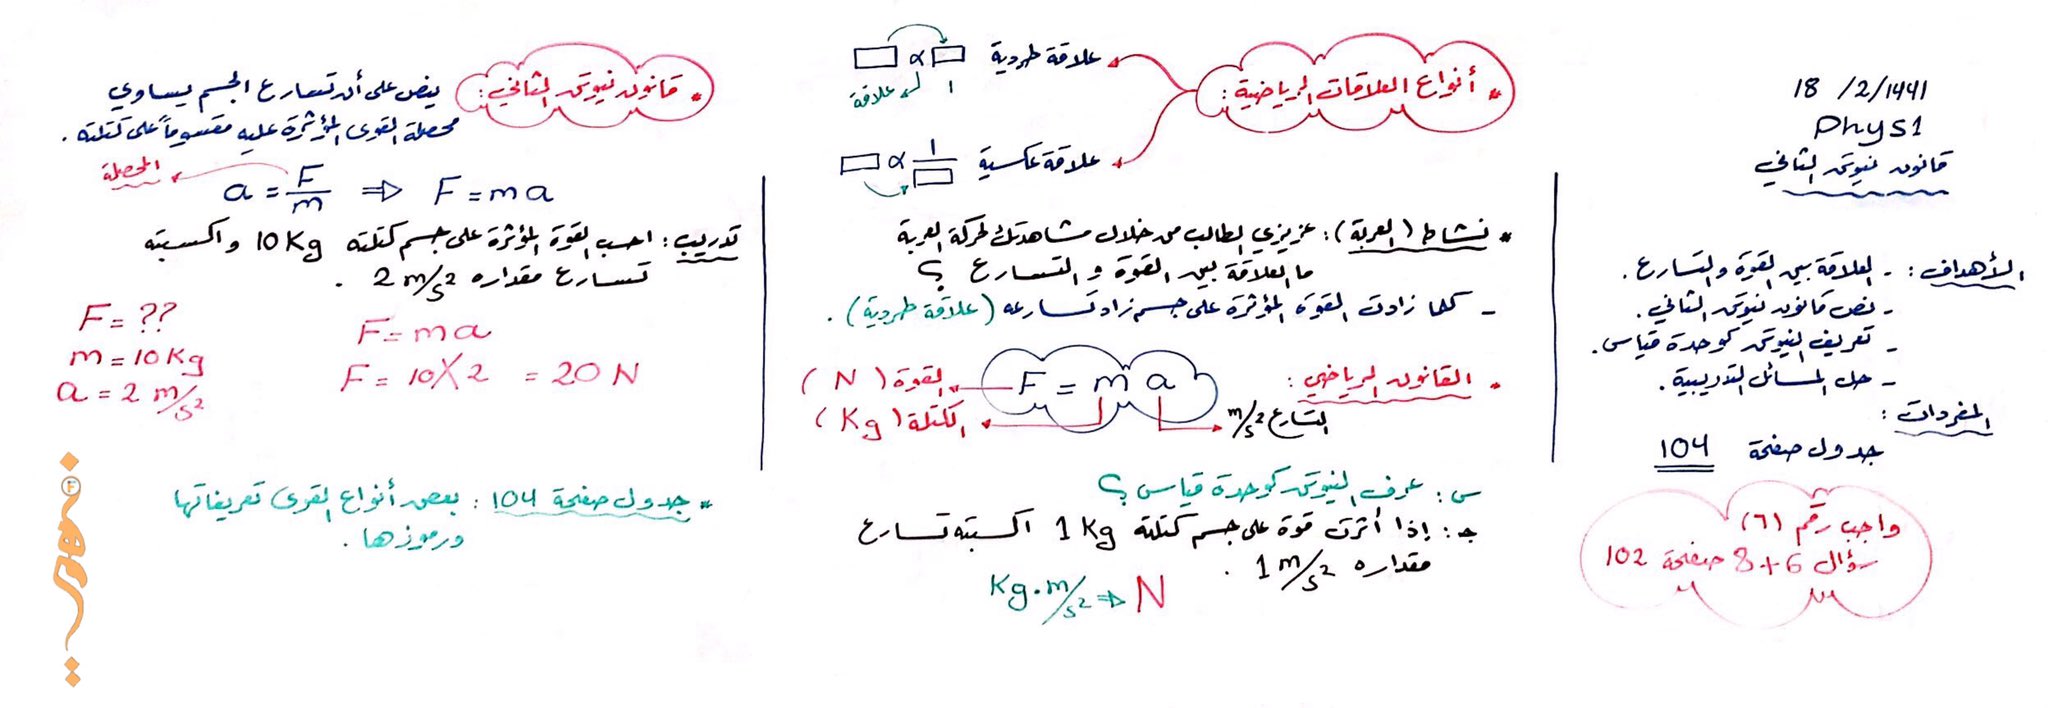 18 /2/1441
Phys1
قانون نيوتن الثاني
الأهداف : - العلاقة بين القوة والتسارع .
- نص قانون نيوتن الثاني .
- تعريف النيوتن كوحدة قياس .
- حل المسائل التدريبية .
المفردات :
جدول صفحة 104
واجب رقم (٦)
سؤال 6+8 صفحة 102
* أنواع العلاقات الرياضية :
علاقة طردية
α
1
علاقة
علاقة عكسية
α 1
* نشاط (العربة) : عزيزي الطالب من خلال مشاهدتك لحركة العربة
ما العلاقة بين القوة و التسارع ؟
- كلما زادت القوة المؤثرة على جسم زاد تسارعه (علاقة طردية) .
* القانون الرياضي :
F = m a
القوة (N)
الكتلة (Kg)
التسارع m/s²
س : عرف النيوتن كوحدة قياس ؟
جـ : إذا أثرت قوة على جسم كتلته 1 Kg اكسبته تسارع
مقداره 1 m/s² .
Kg.m/s² ⇒ N
* قانون نيوتن الثاني :
ينص على أن تسارع الجسم يساوي
محصلة القوى المؤثرة عليه مقسوماً على كتلته .
المحصلة
a = F/m ⇒ F = m a
تدريب : احسب القوة المؤثرة على جسم كتلته 10 Kg واكسبته
تسارع مقداره 2 m/s² .
F = ??
m = 10 Kg
a = 2 m/s²
F = m a
F = 10 X 2 = 20 N
* جدول صفحة 104 : بعض أنواع القوى تعريفاتها
ورموزها .